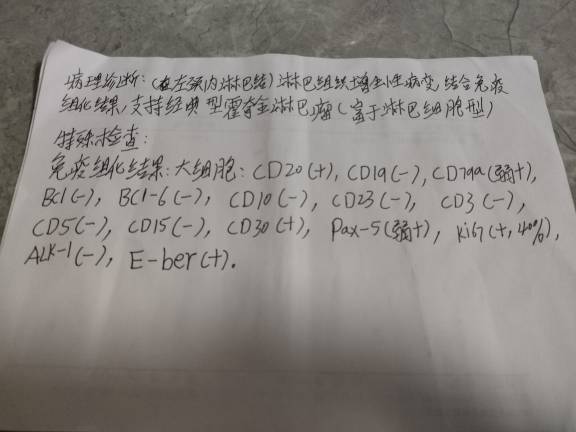 病理诊断：(左颈内淋巴结)淋巴组织增生性病变，结合免疫
组化结果，支持经典型霍奇金淋巴瘤(富于淋巴细胞型)
特殊检查：
免疫组化结果：大细胞：CD20(+), CD19(-), CD79a(弱+),
Bcl(-), BCl-6(-), CD10(-), CD23(-), CD3(-),
CD5(-), CD15(-), CD30(+), Pax-5(弱+), ki67(+,40%),
ALK-1(-), E-ber(+).